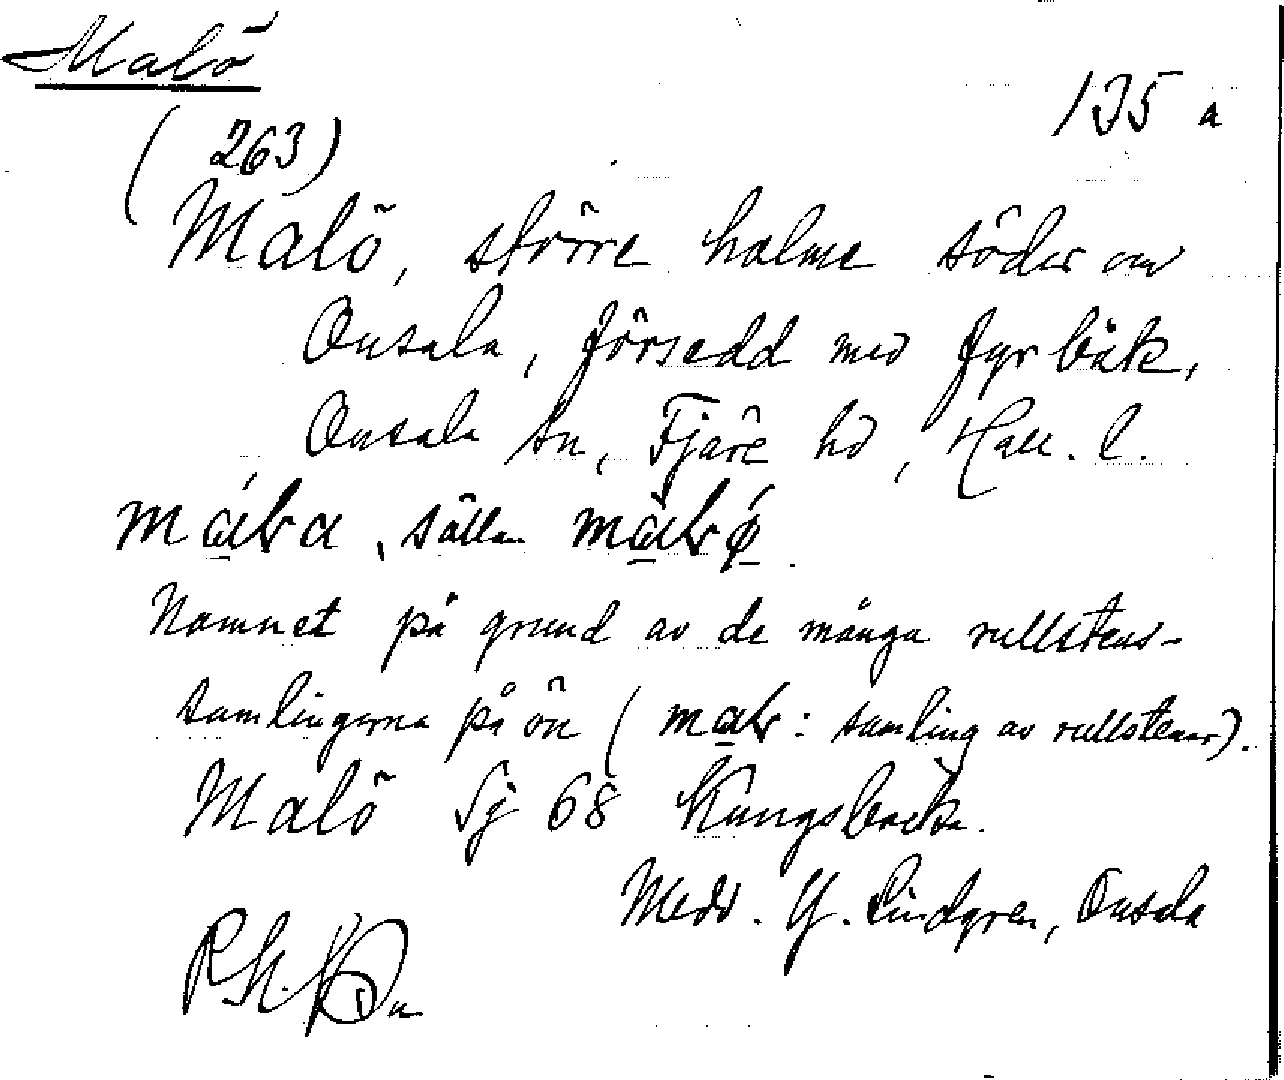 Malö
135 a
(263)
Malö, större holme söder om
Onsala, försedd med fyrbåk,
Onsala sn, Fjäre hd, Hall. l.
mála, sällan màlǿ.
Namnet på grund av de många rullstens-
samlingarna på ön (mal: samling av rullstenar).
Malö Sj 68 Kungsbacka.
Medd. G. Lindgren, Onsala